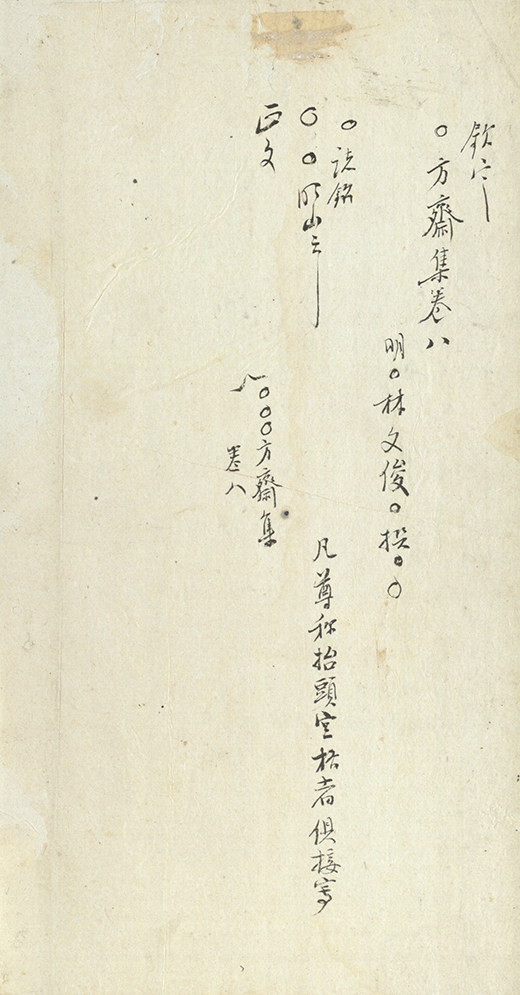 欽定
○方齋集卷八
明○林文俊○撰○○
○誌銘
○○明山云
凡尊称抬頭空格者俱接寫
正文
八○○○方齋集
卷八